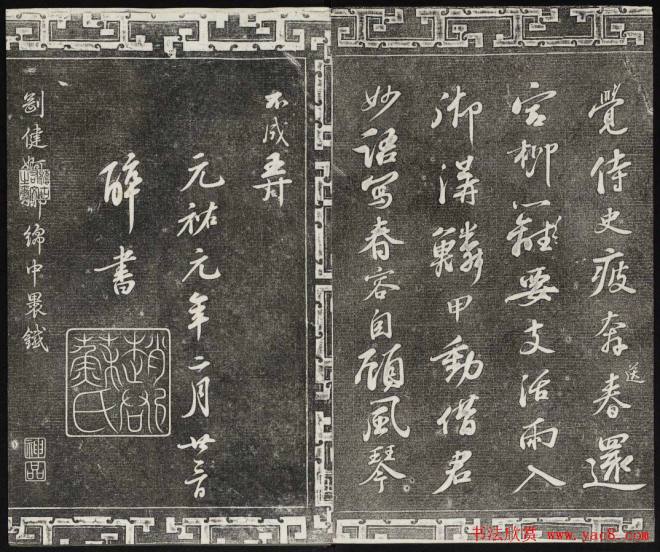 覺侍史疲奔送春還
宮柳要支活雨入
御溝鱗甲動借君
妙語寫春容自顧風琴
不成弄
元祐元年二月廿日
醉書
趙郡蘇氏
剛健婀娜綿中裹鐵
神品
书法欣赏 www.yac8.com